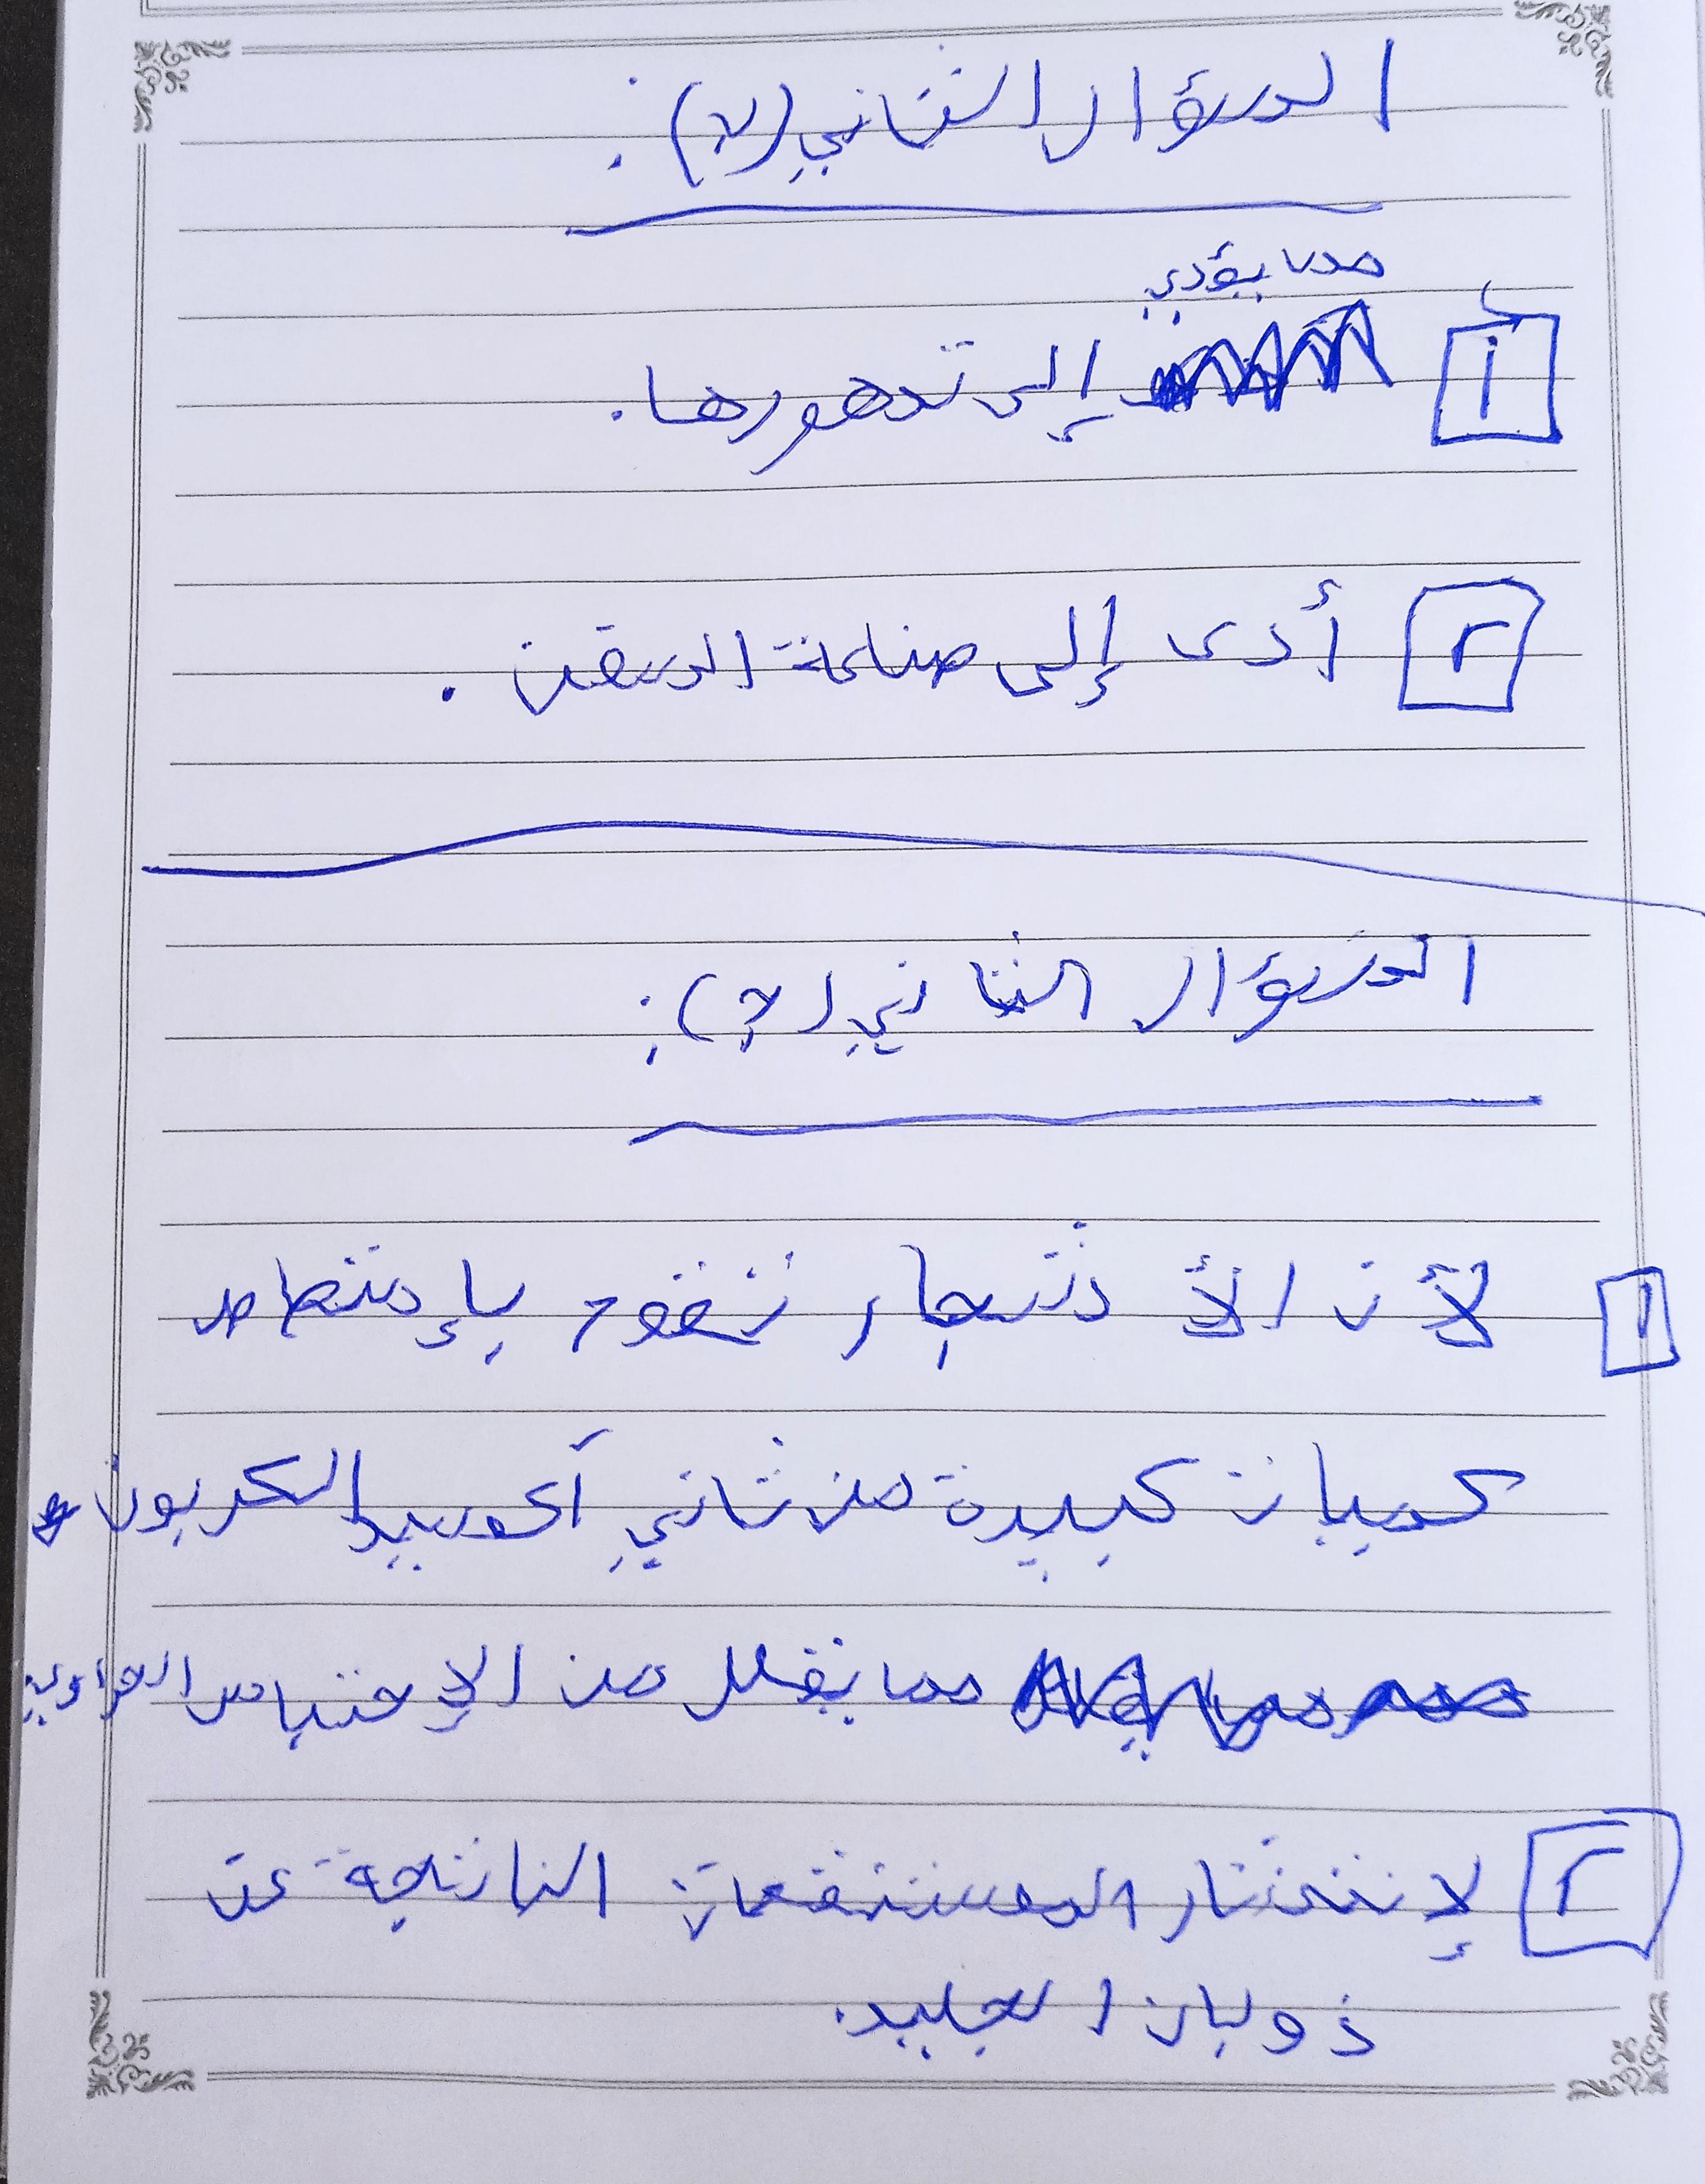 السؤال الثاني (لا):
مما يؤدي
١ إلى تدهورها.
٢ أدى إلى صناعة السفن.
السؤال الثاني (ج):
١ لأن الأشجار تقوم بإمتصاص
كميات كبيرة من ثاني أكسيد الكربون
مما يقلل من الإحتباس الحراري
٢ لإنتشار المستنقعات الناتجة عن
ذوبان الجليد.